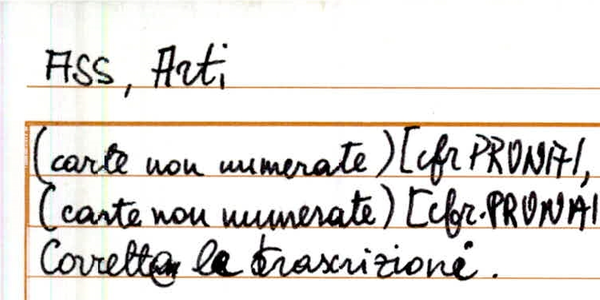 ASS, Arti
(carte non numerate) [cfr PRUNAI,
(carte non numerate) [cfr. PRUNAI
Corretta la trascrizione.